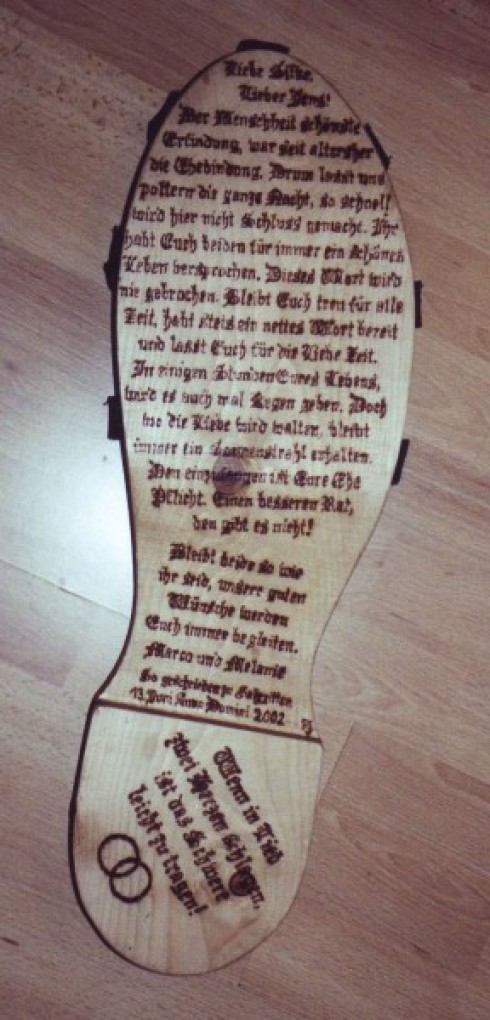 Liebe Silke,
Lieber Jens!
Der Menschheit schönste
Erfindung, war seit altersher
die Ehebindung. Drum lasst uns
poltern die ganze Nacht, so schnell
wird hier nicht Schluss gemacht. Ihr
habt Euch beiden für immer ein schönes
Leben versprochen. Dieses Wort wird
nie gebrochen. Bleibt Euch treu für alle
Zeit, habt stets ein nettes Wort bereit
und lasst Euch für die Liebe Zeit.
In einigen Stunden Eures Lebens,
wird es auch mal Regen geben. Doch
wo die Liebe wird walten, bleibt
immer ein Sonnenstrahl erhalten.
Den einzufangen ist Eure Ehe
Pflicht. Einen besseren Rat,
den gibt es nicht!
Bleibt beide so wie
ihr seid, unsere guten
Wünsche werden
Euch immer begleiten.
Marco und Melanie
So geschrieben zu
13. Juni Anno Domini 2002
Wenn in Lieb
zwei Herzen schlagen,
ist das Schwere
leicht zu tragen!